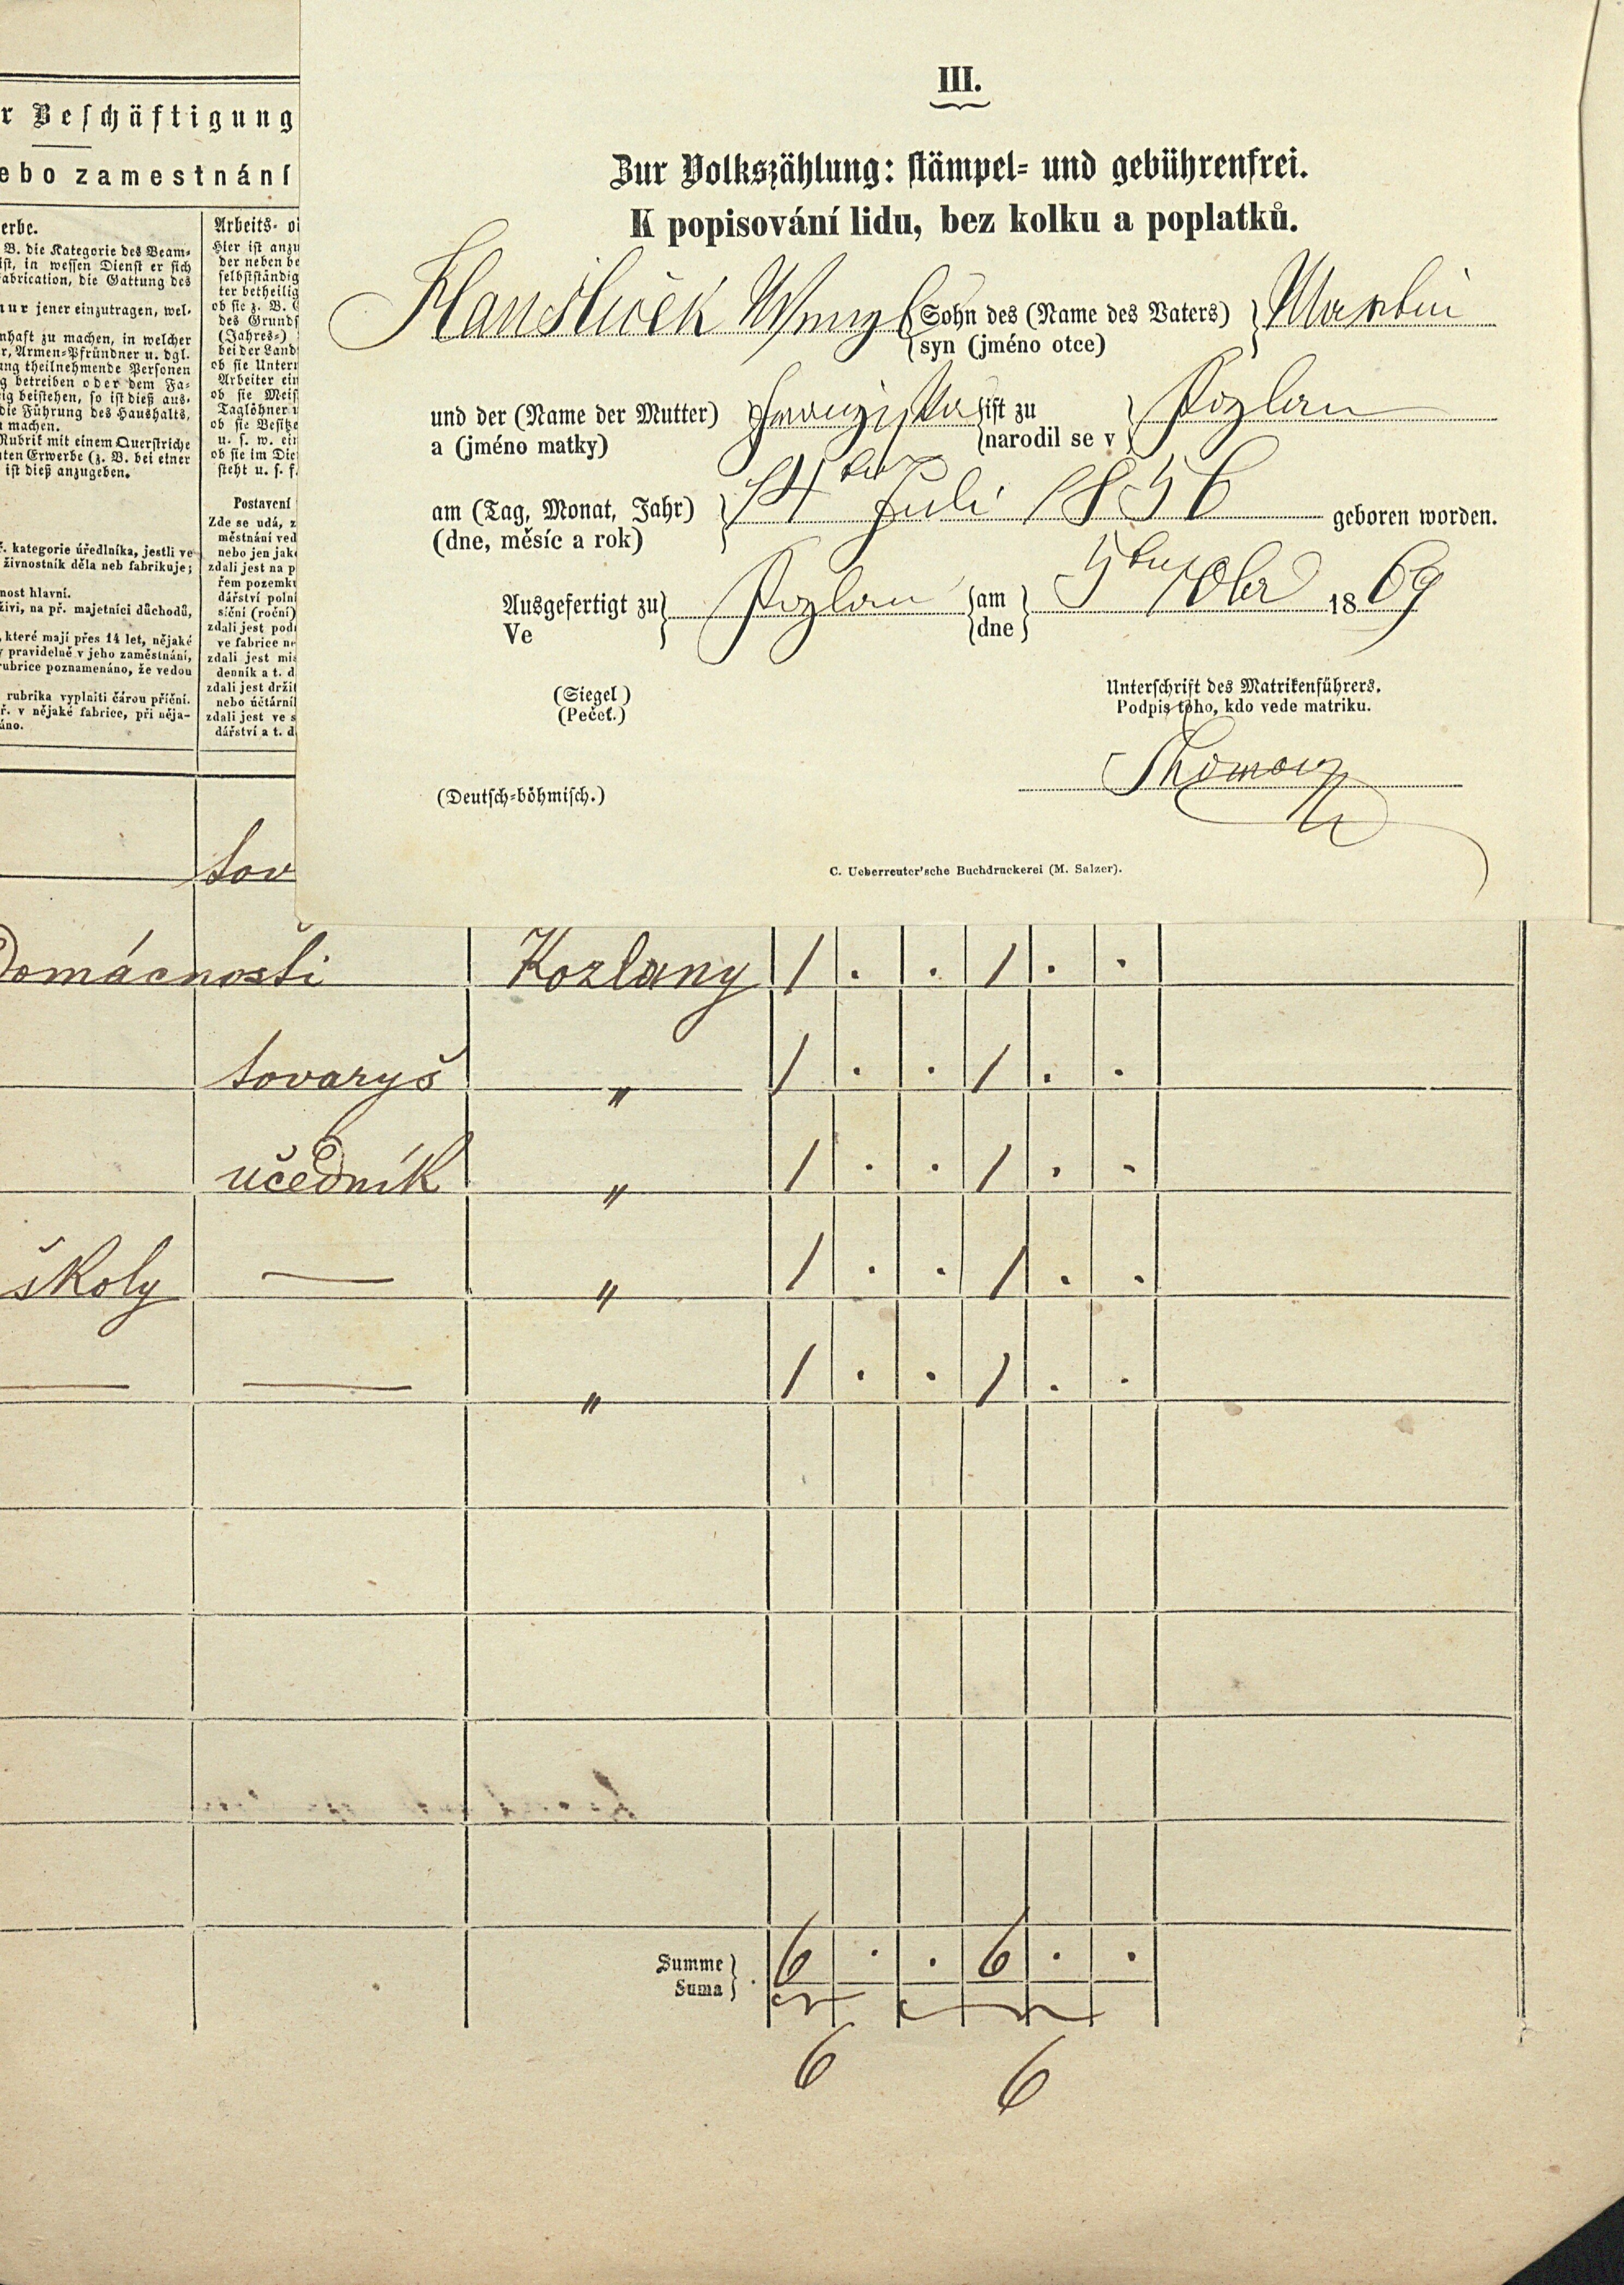 III.
Zur Volkszählung: stämpel- und gebührenfrei.
K popisování lidu, bez kolku a poplatků.
Wenzl { Sohn des (Name des Vaters) } Martin
syn (jméno otce)
und der (Name der Mutter) } Franziska { ist zu } Kozlan
a (jméno matky) narodil se v
am (Tag, Monat, Jahr) } 14ten Juli 1856 geboren worden.
(dne, měsíc a rok)
Ausgefertigt zu } Kozlan { am } 5ten 1869
Ve dne
(Siegel) Unterschrift des Matrikenführers.
(Pečeť.) Podpis toho, kdo vede matriku.
(Deutsch-böhmisch.)
C. Ueberreuter'sche Buchdruckerei (M. Salzer).
r Beschäftigung
ebo zamestnání
erbe.
B. die Kategorie des Beam-
ist, in wessen Dienst er sich
abrication, die Gattung des
nur jener einzutragen, wel-
nhaft zu machen, in welcher
r, Armen-Pfründner u. dgl.
ung theilnehmende Personen
g betreiben oder dem Fa-
ig beistehen, so ist dieß aus-
die Führung des Haushalts,
machen.
Rubrik mit einem Querstriche
ten Erwerbe (z. B. bei einer
ist dieß anzugeben.
ř. kategorie úředlníka, jestli ve
živnostník děla neb fabrikuje;
nost hlavní.
živi, na př. majetníci důchodů,
, které mají přes 14 let, nějaké
y pravidelně v jeho zaměstnání,
rubrice poznamenáno, že vedou
rubrika vyplniti čárou příční.
ř. v nějaké fabrice, při něja-
áno.
Arbeits- o
Hier ist anzu
der neben be
selbstständig
ter betheilig
ob sie z. B. 
des Grunds
(Jahres-)
bei der Land
ob sie Untern
Arbeiter ein
ob sie Meis
Taglöhner u
ob sie Besitze
u. s. w. ein
ob sie im Die
steht u. s. f.
Postavení
Zde se udá, z
městnání ved
nebo jen jak
zdali jest na p
řem pozemk
dářství poln
síční (roční)
zdali jest pod
ve fabrice n
zdali jest mi
denník a t. d
zdali jest držit
nebo účtárni
zdali jest ve s
dářství a t. d
tov
Domácnosti Kozlany 1 . . 1 . .
tovaryš " 1 . . 1 . .
učedník " 1 . . 1 . .
školy — " 1 . . 1 . .
— — " 1 . . 1 . .
Summe } 6 . . 6 . .
Suma
6 6